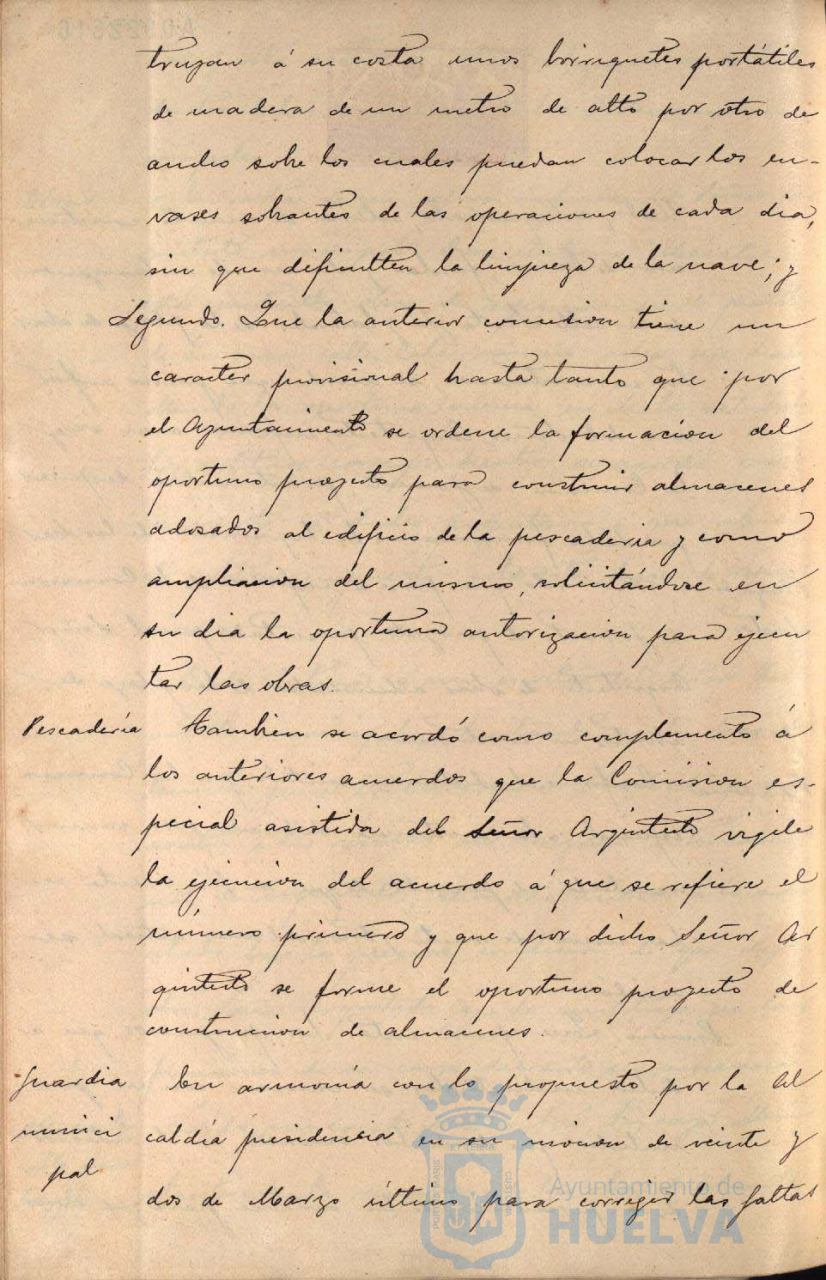 truyan á su costa unos borriquetes portátiles
de madera de un metro de alto por otro de
ancho sobre los cuales puedan colocar los en-
vases sobrantes de las operaciones de cada dia,
sin que dificulten la limpieza de la nave; y
Segundo. Que la anterior concesion tiene un
caracter provisional hasta tanto que por
el Ayuntamiento se ordene la formacion del
oportuno proyecto para construir almacenes
adosados al edificio de la pescaderia y como
ampliacion del mismo, solicitándose en
su dia la oportuna autorizacion para ejecu
tar las obras.
Pescadería Tambien se acordó como complemento á
los anteriores acuerdos que la Comision es-
pecial asistida del Señor Arquitecto vigile
la ejecucion del acuerdo á que se refiere el
número primero y que por dicho Señor Ar
quitecto se forme el oportuno proyecto de
construccion de almacenes.
Guardia En armonía con lo propuesto por la Al
munici caldía presidencia en su mocion de veinte y
pal dos de Marzo último para corregir las faltas
Ayuntamiento de
HUELVA